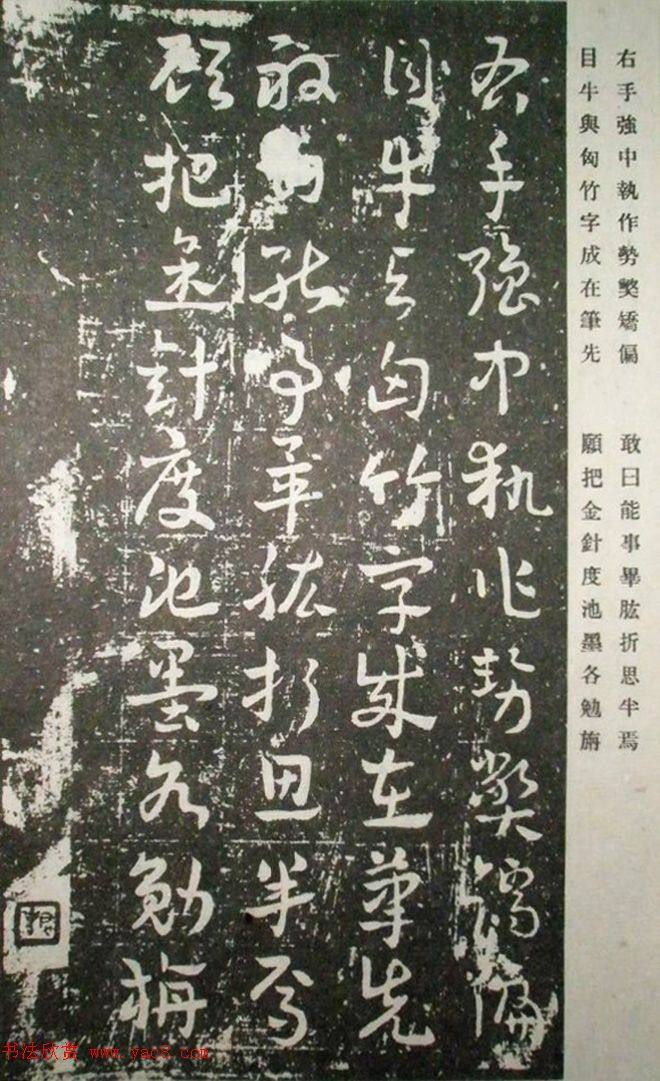 右手強中執作勢獘矯偏　敢曰能事畢肱折思半焉
目牛與匈竹字成在筆先　願把金針度池墨各勉旃
右手強中執作勢獘矯偏
目牛与匈竹字成在筆先
敢曰能事畢肱折思半焉
願把金針度池墨各勉旃
书法欣赏 www.yac8.com